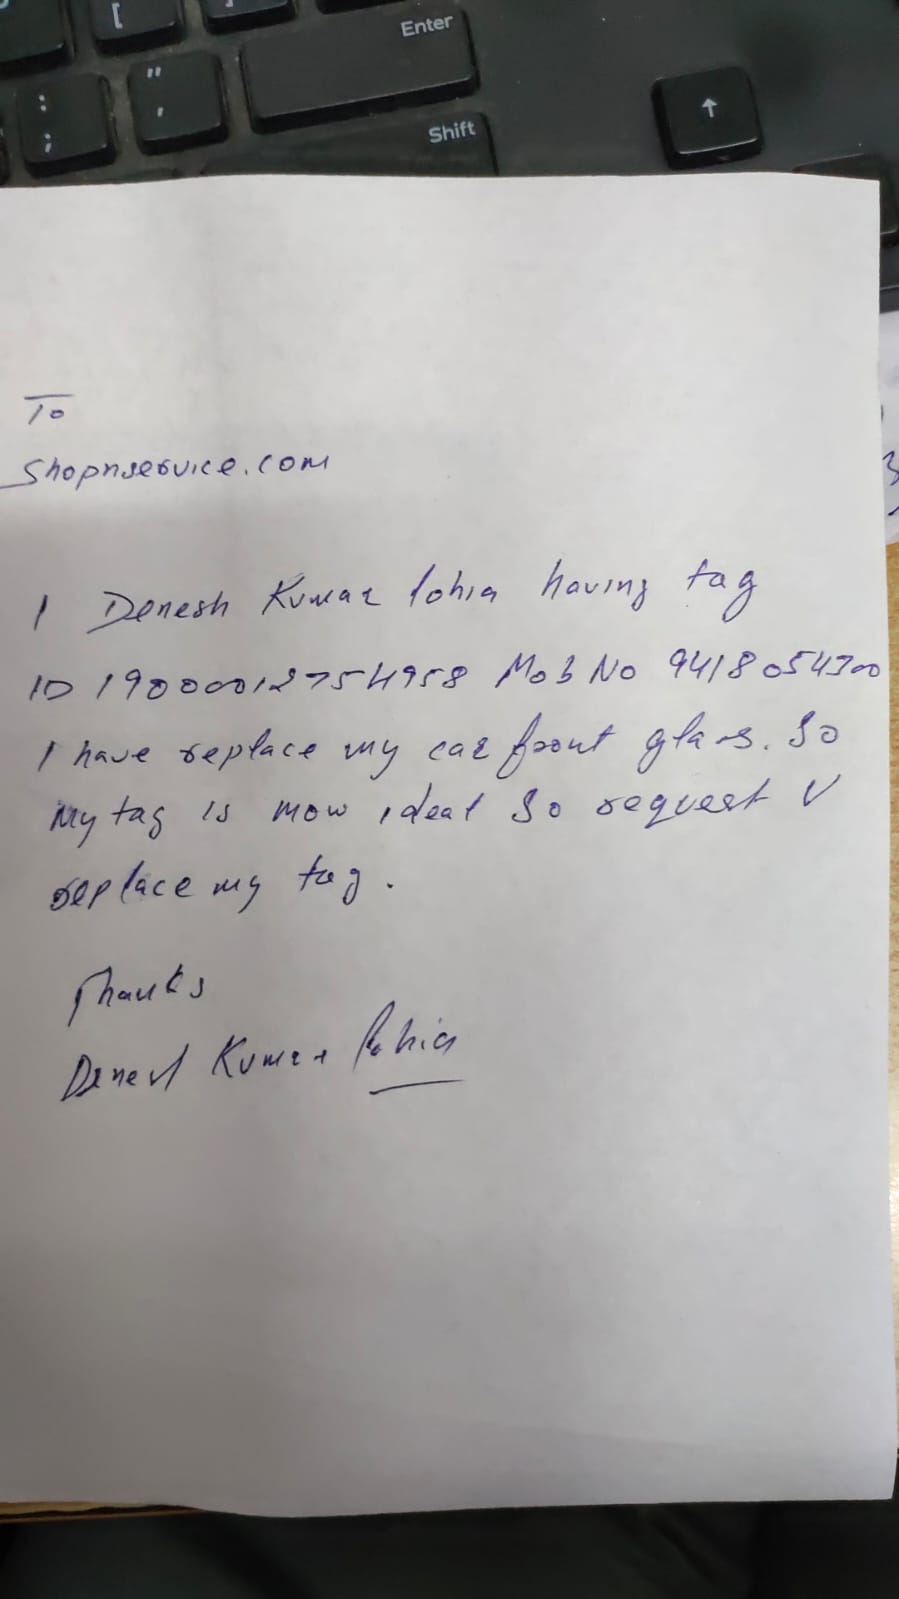 [
Enter
"
'
:
;
Shift
↑
To
Shopnservice.com
I Denesh Kumar Lohia having tag
ID 19000012754958 Mob No 9418054300
I have replace my car front glass. So
My tag is now ideal So request U
replace my tag.
Thanks
Denesh Kumar Lohia